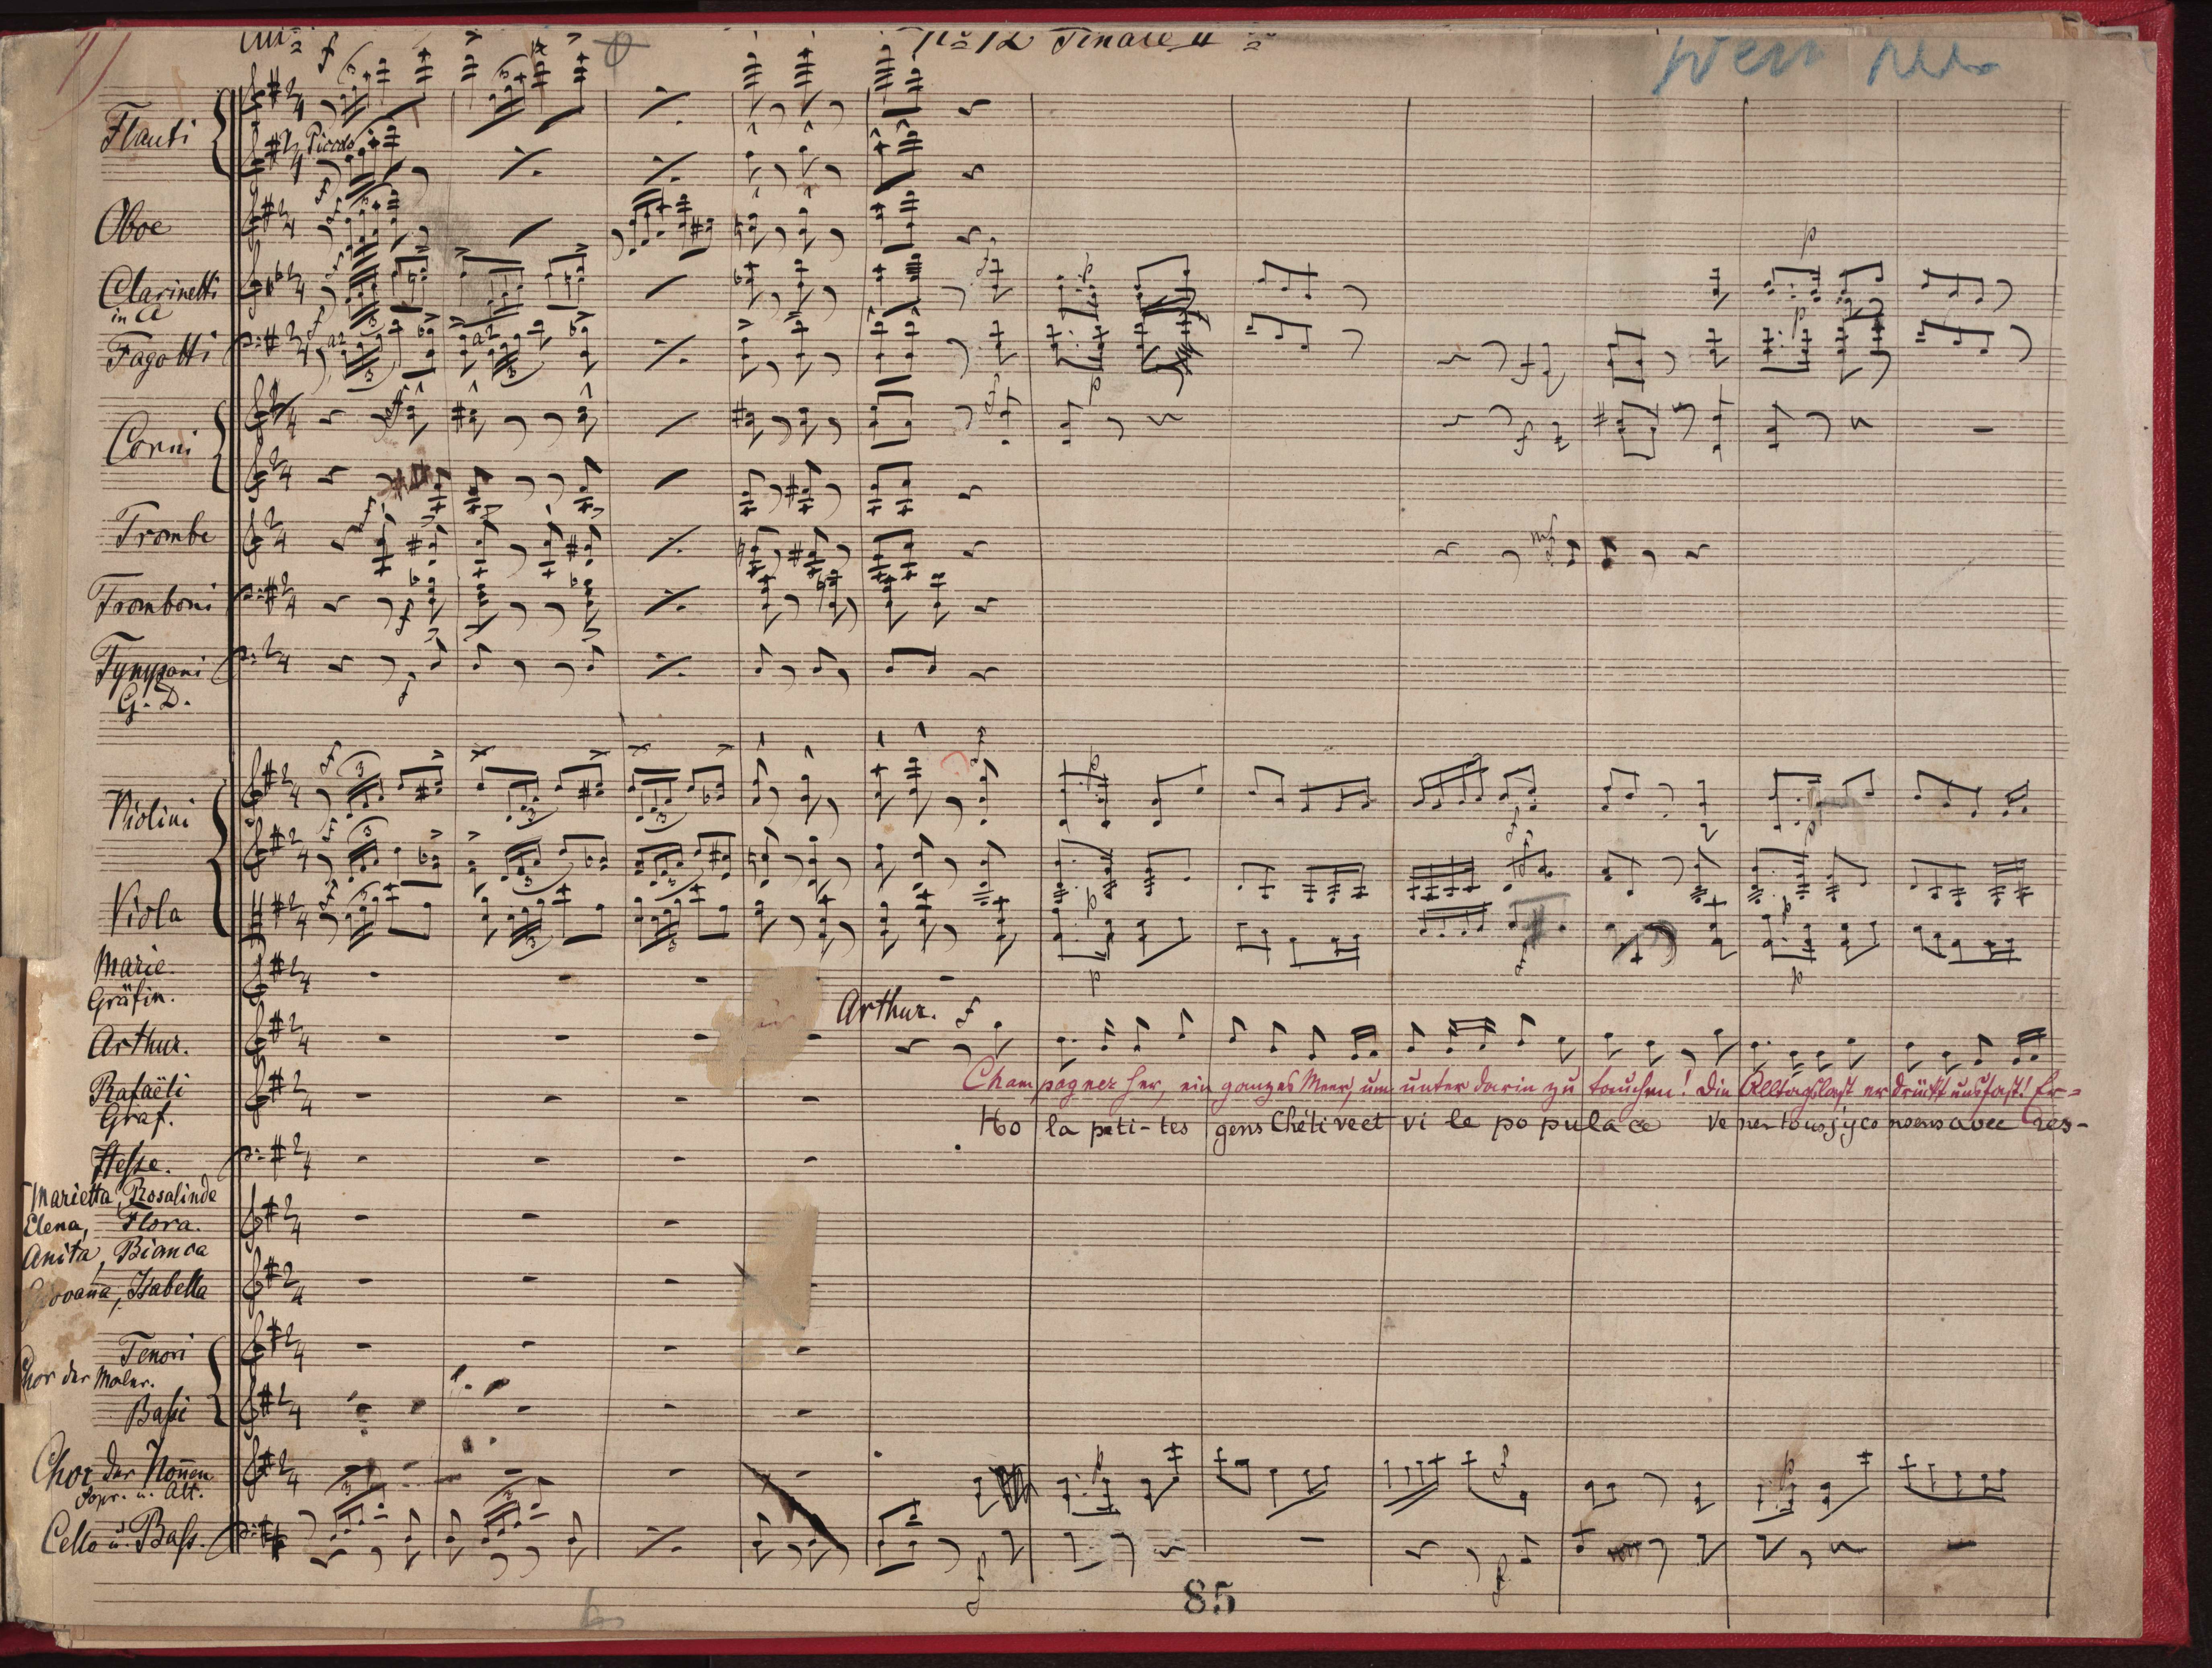 No 12 Finale II
Flauti
Piccolo
Oboe
Clarinetti
in A
Fagotti
a2
a2
Corni
Trombe
mf
Tromboni
Tympani
G. D.
Violini
Viola
Marie
Gräfin.
Arthur.
Arthur.
Champagner her, ein ganzes Meer, um unter darin zu tauchen! Die Alltagslast erdrückt uns fast! Er-
Rafaëli
Graf.
Ho la peti-tes gens Chétive et vi le po pu la ce Ve nez tous
Hesse.
Marietta, Rosalinde
Elena, Flora.
Anita, Bianca
Isabella
Tenori
Chor der Maler.
Bassi
Chor der Nonnen
Sopr. u. Alt.
Cello u. Bass.
85